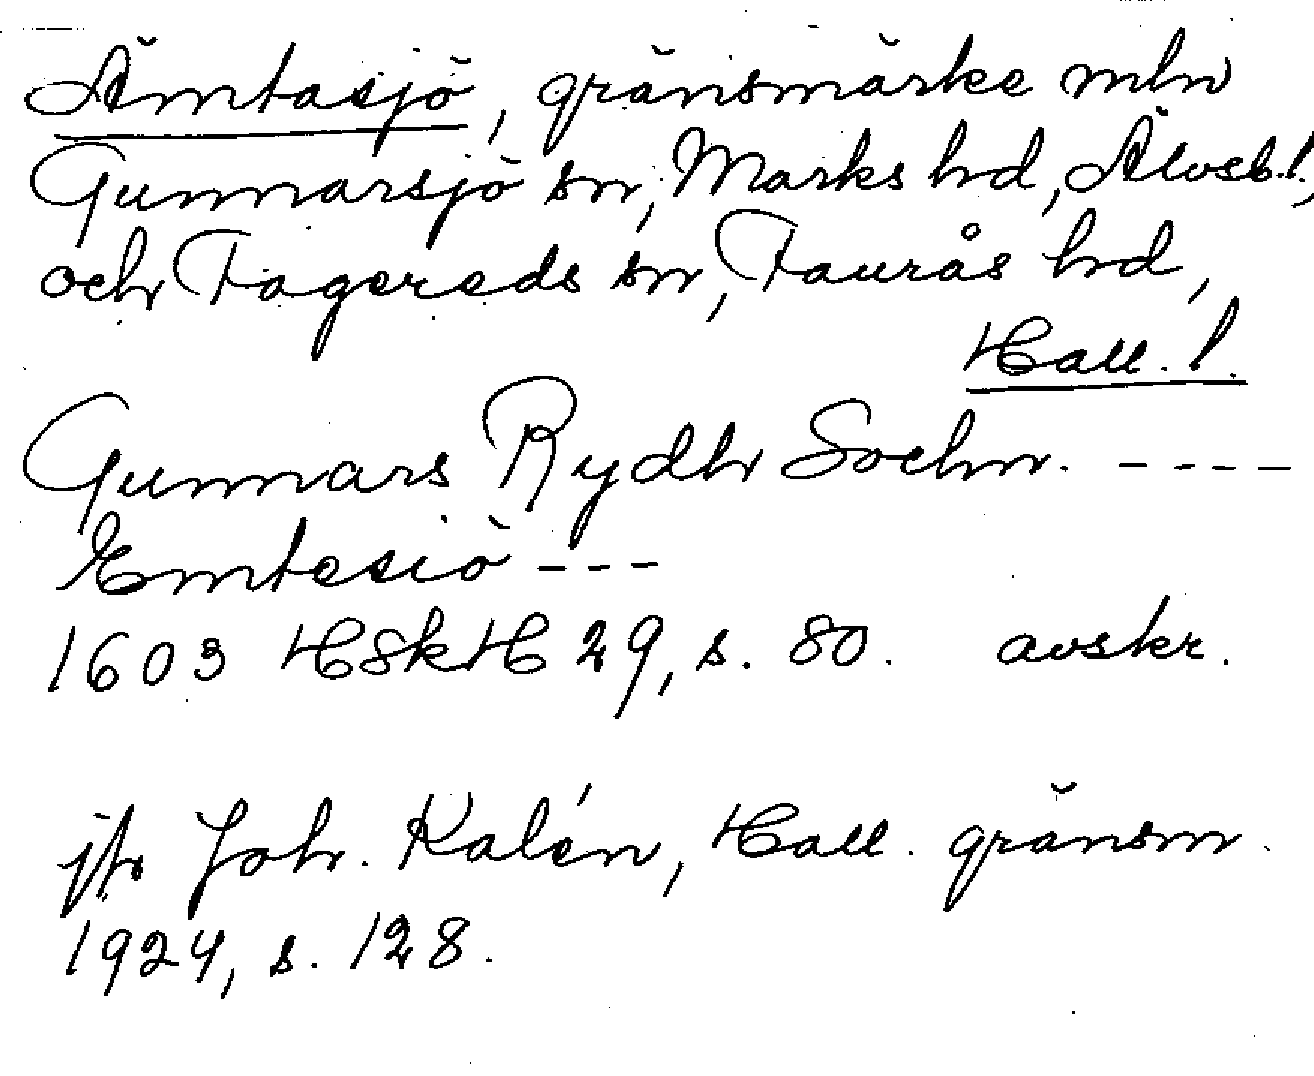 Ämtasjö, gränsmärke mln
Gunnarsjö sn, Marks hd, Älvsb. l.,
och Fagereds sn, Faurås hd,
Hall. l.
Gunnars Rydh Sochn. ----
Emtesiö ---
1603 HSkH 29, s. 80. avskr.
jfr Joh. Kalén, Hall. gränsm.
1924, s. 128.